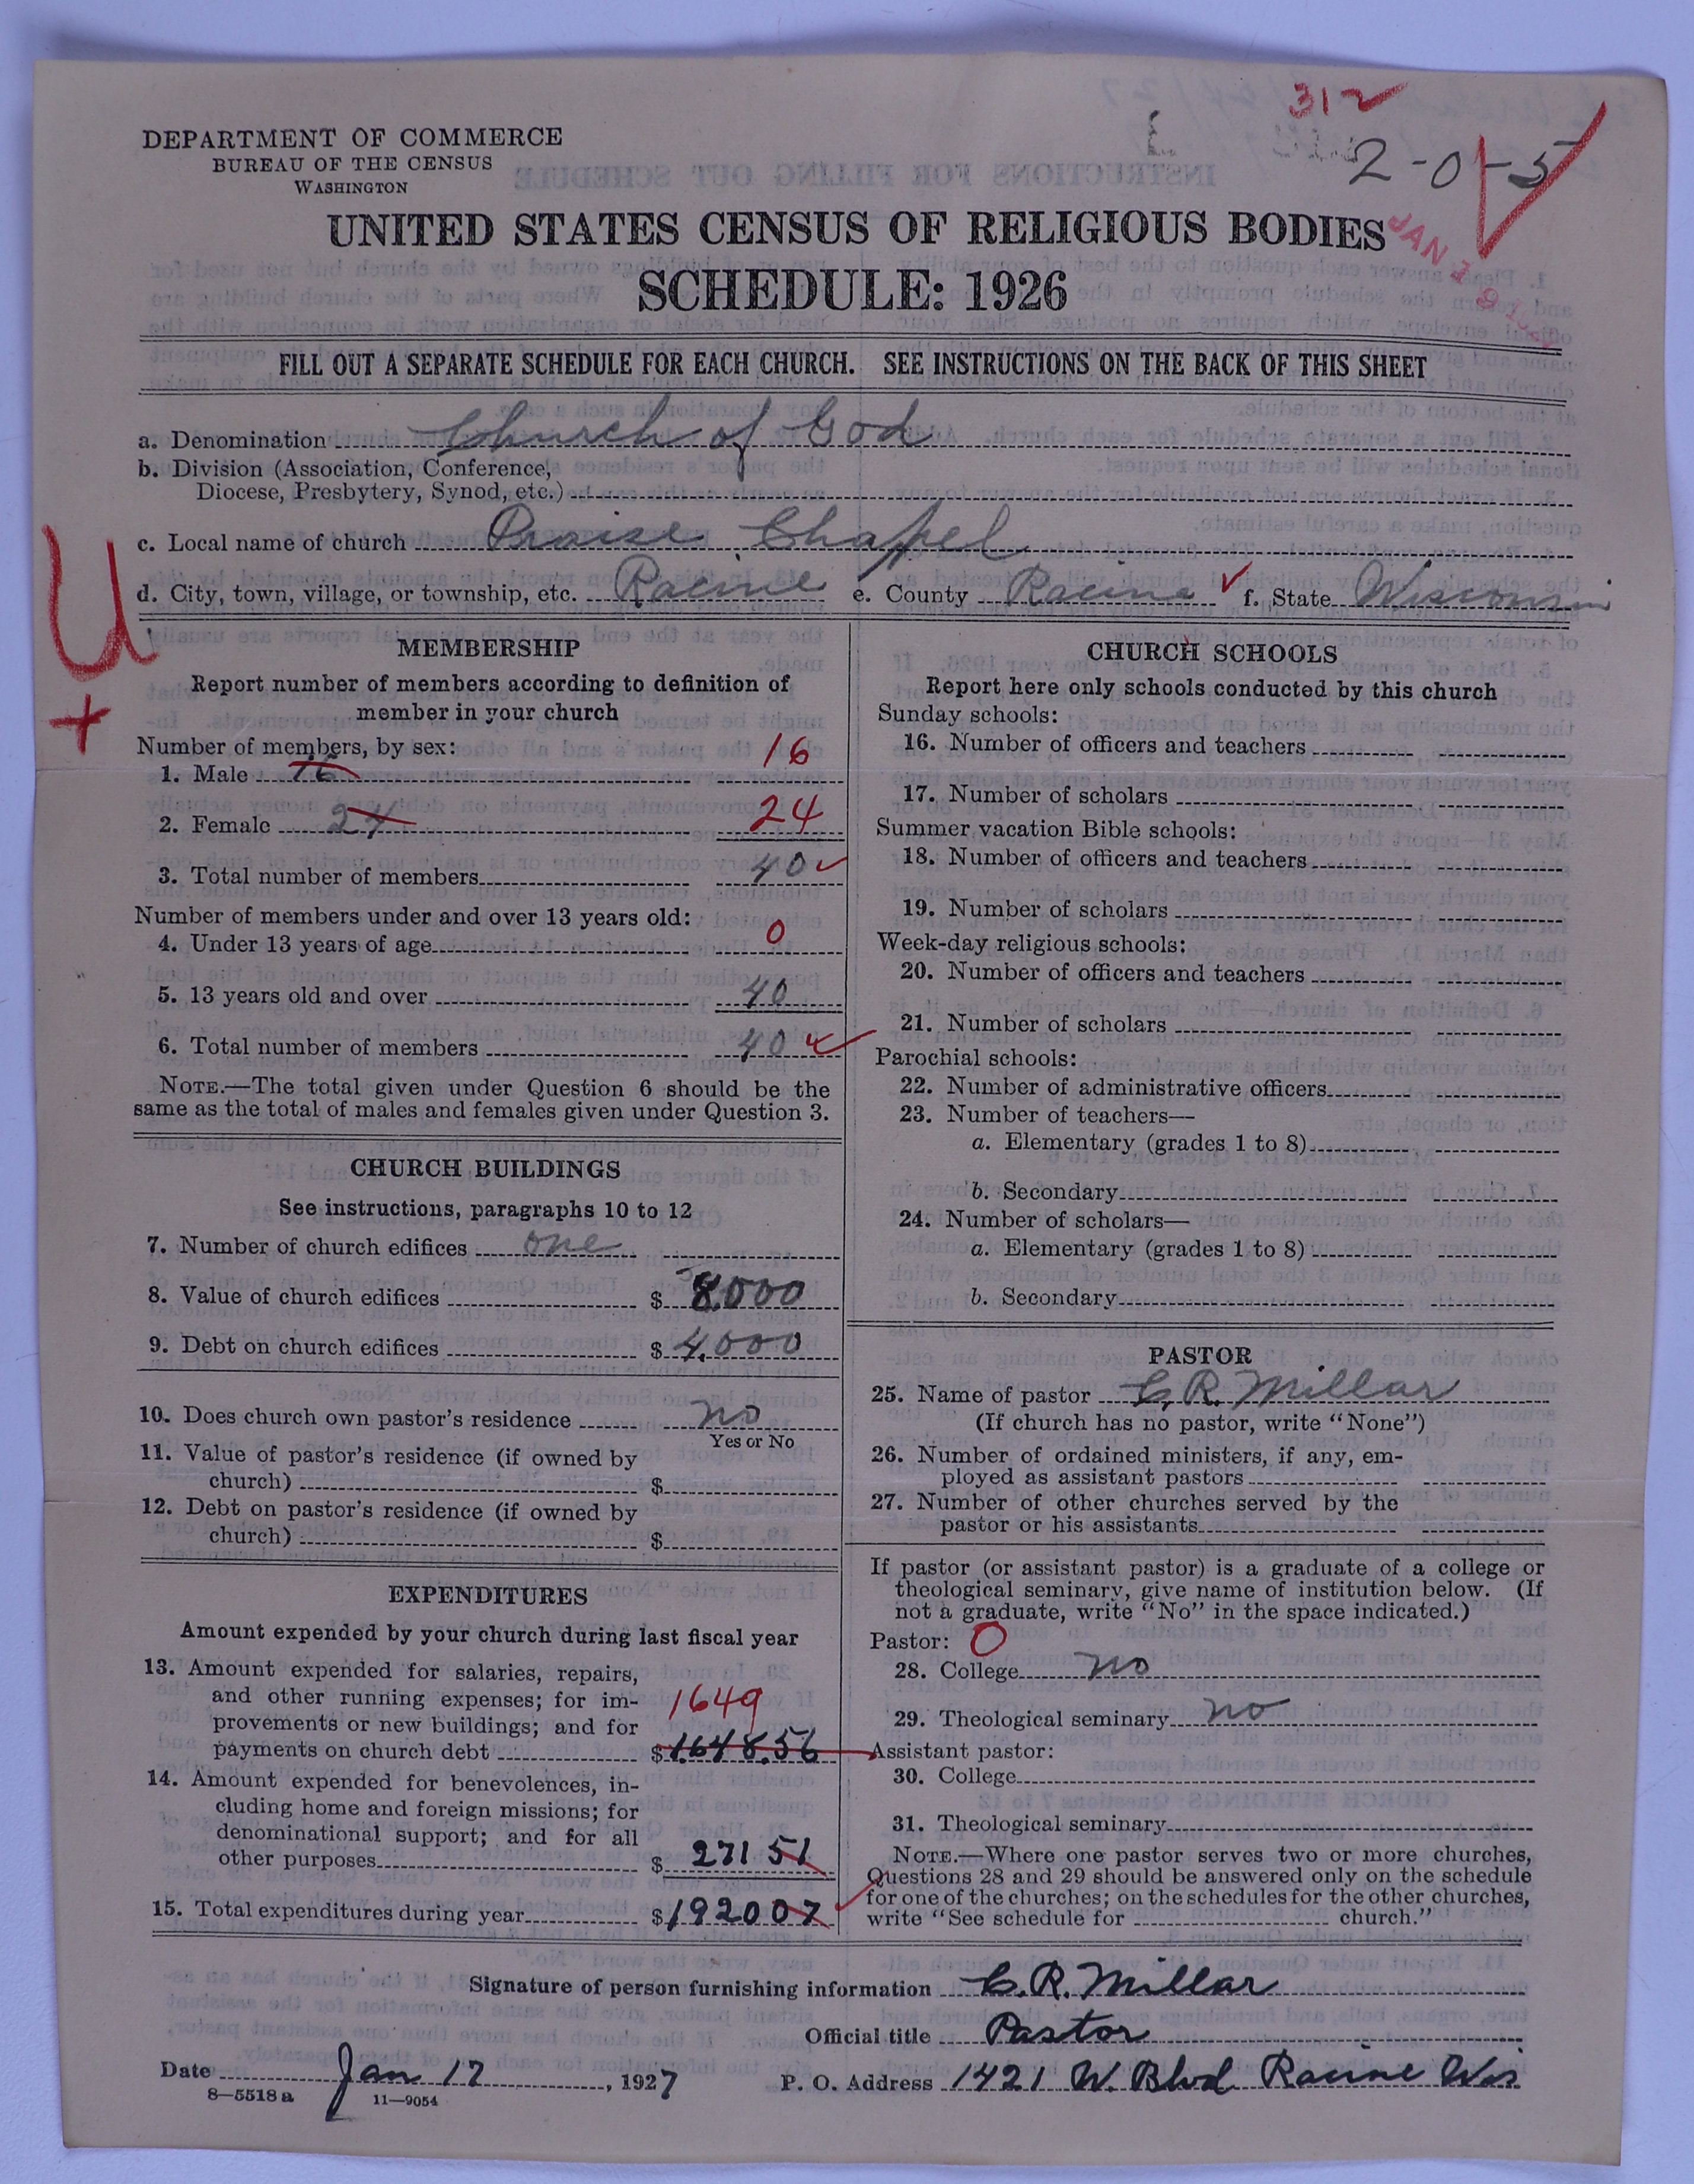 312
2-0-5
DEPARTMENT OF COMMERCE
BUREAU OF THE CENSUS
WASHINGTON
UNITED STATES CENSUS OF RELIGIOUS BODIES
SCHEDULE: 1926
JAN 19
FILL OUT A SEPARATE SCHEDULE FOR EACH CHURCH. SEE INSTRUCTIONS ON THE BACK OF THIS SHEET
a. Denomination Church of God
b. Division (Association, Conference,
Diocese, Presbytery, Synod, etc.)
c. Local name of church Praise Chapel
d. City, town, village, or township, etc. Racine e. County Racine f. State Wisconsin
U
+
MEMBERSHIP
Report number of members according to definition of
member in your church
Number of members, by sex:
1. Male 16 16
2. Female 24 24
3. Total number of members 40
Number of members under and over 13 years old:
4. Under 13 years of age 0
5. 13 years old and over 40
6. Total number of members 40
NOTE.—The total given under Question 6 should be the
same as the total of males and females given under Question 3.
CHURCH BUILDINGS
See instructions, paragraphs 10 to 12
7. Number of church edifices one
8. Value of church edifices $ 8,000
9. Debt on church edifices $ 4,000
10. Does church own pastor's residence no
Yes or No
11. Value of pastor's residence (if owned by
church) $
12. Debt on pastor's residence (if owned by
church) $
EXPENDITURES
Amount expended by your church during last fiscal year
13. Amount expended for salaries, repairs,
and other running expenses; for im-
provements or new buildings; and for
1649
payments on church debt $ 1648.56
14. Amount expended for benevolences, in-
cluding home and foreign missions; for
denominational support; and for all
other purposes $ 271 51
15. Total expenditures during year $ 1920 07
CHURCH SCHOOLS
Report here only schools conducted by this church
Sunday schools:
16. Number of officers and teachers
17. Number of scholars
Summer vacation Bible schools:
18. Number of officers and teachers
19. Number of scholars
Week-day religious schools:
20. Number of officers and teachers
21. Number of scholars
Parochial schools:
22. Number of administrative officers
23. Number of teachers—
a. Elementary (grades 1 to 8)
b. Secondary
24. Number of scholars—
a. Elementary (grades 1 to 8)
b. Secondary
PASTOR
25. Name of pastor G. R. Millar
(If church has no pastor, write "None")
26. Number of ordained ministers, if any, em-
ployed as assistant pastors
27. Number of other churches served by the
pastor or his assistants
If pastor (or assistant pastor) is a graduate of a college or
theological seminary, give name of institution below. (If
not a graduate, write "No" in the space indicated.)
Pastor: 0
28. College no
29. Theological seminary no
Assistant pastor:
30. College
31. Theological seminary
NOTE.—Where one pastor serves two or more churches,
Questions 28 and 29 should be answered only on the schedule
for one of the churches; on the schedules for the other churches,
write "See schedule for church."
Signature of person furnishing information G. R. Millar
Official title Pastor
Date Jan 17, 1927 P. O. Address 1421 W. Blvd Racine Wis
8—5518a 11—9054